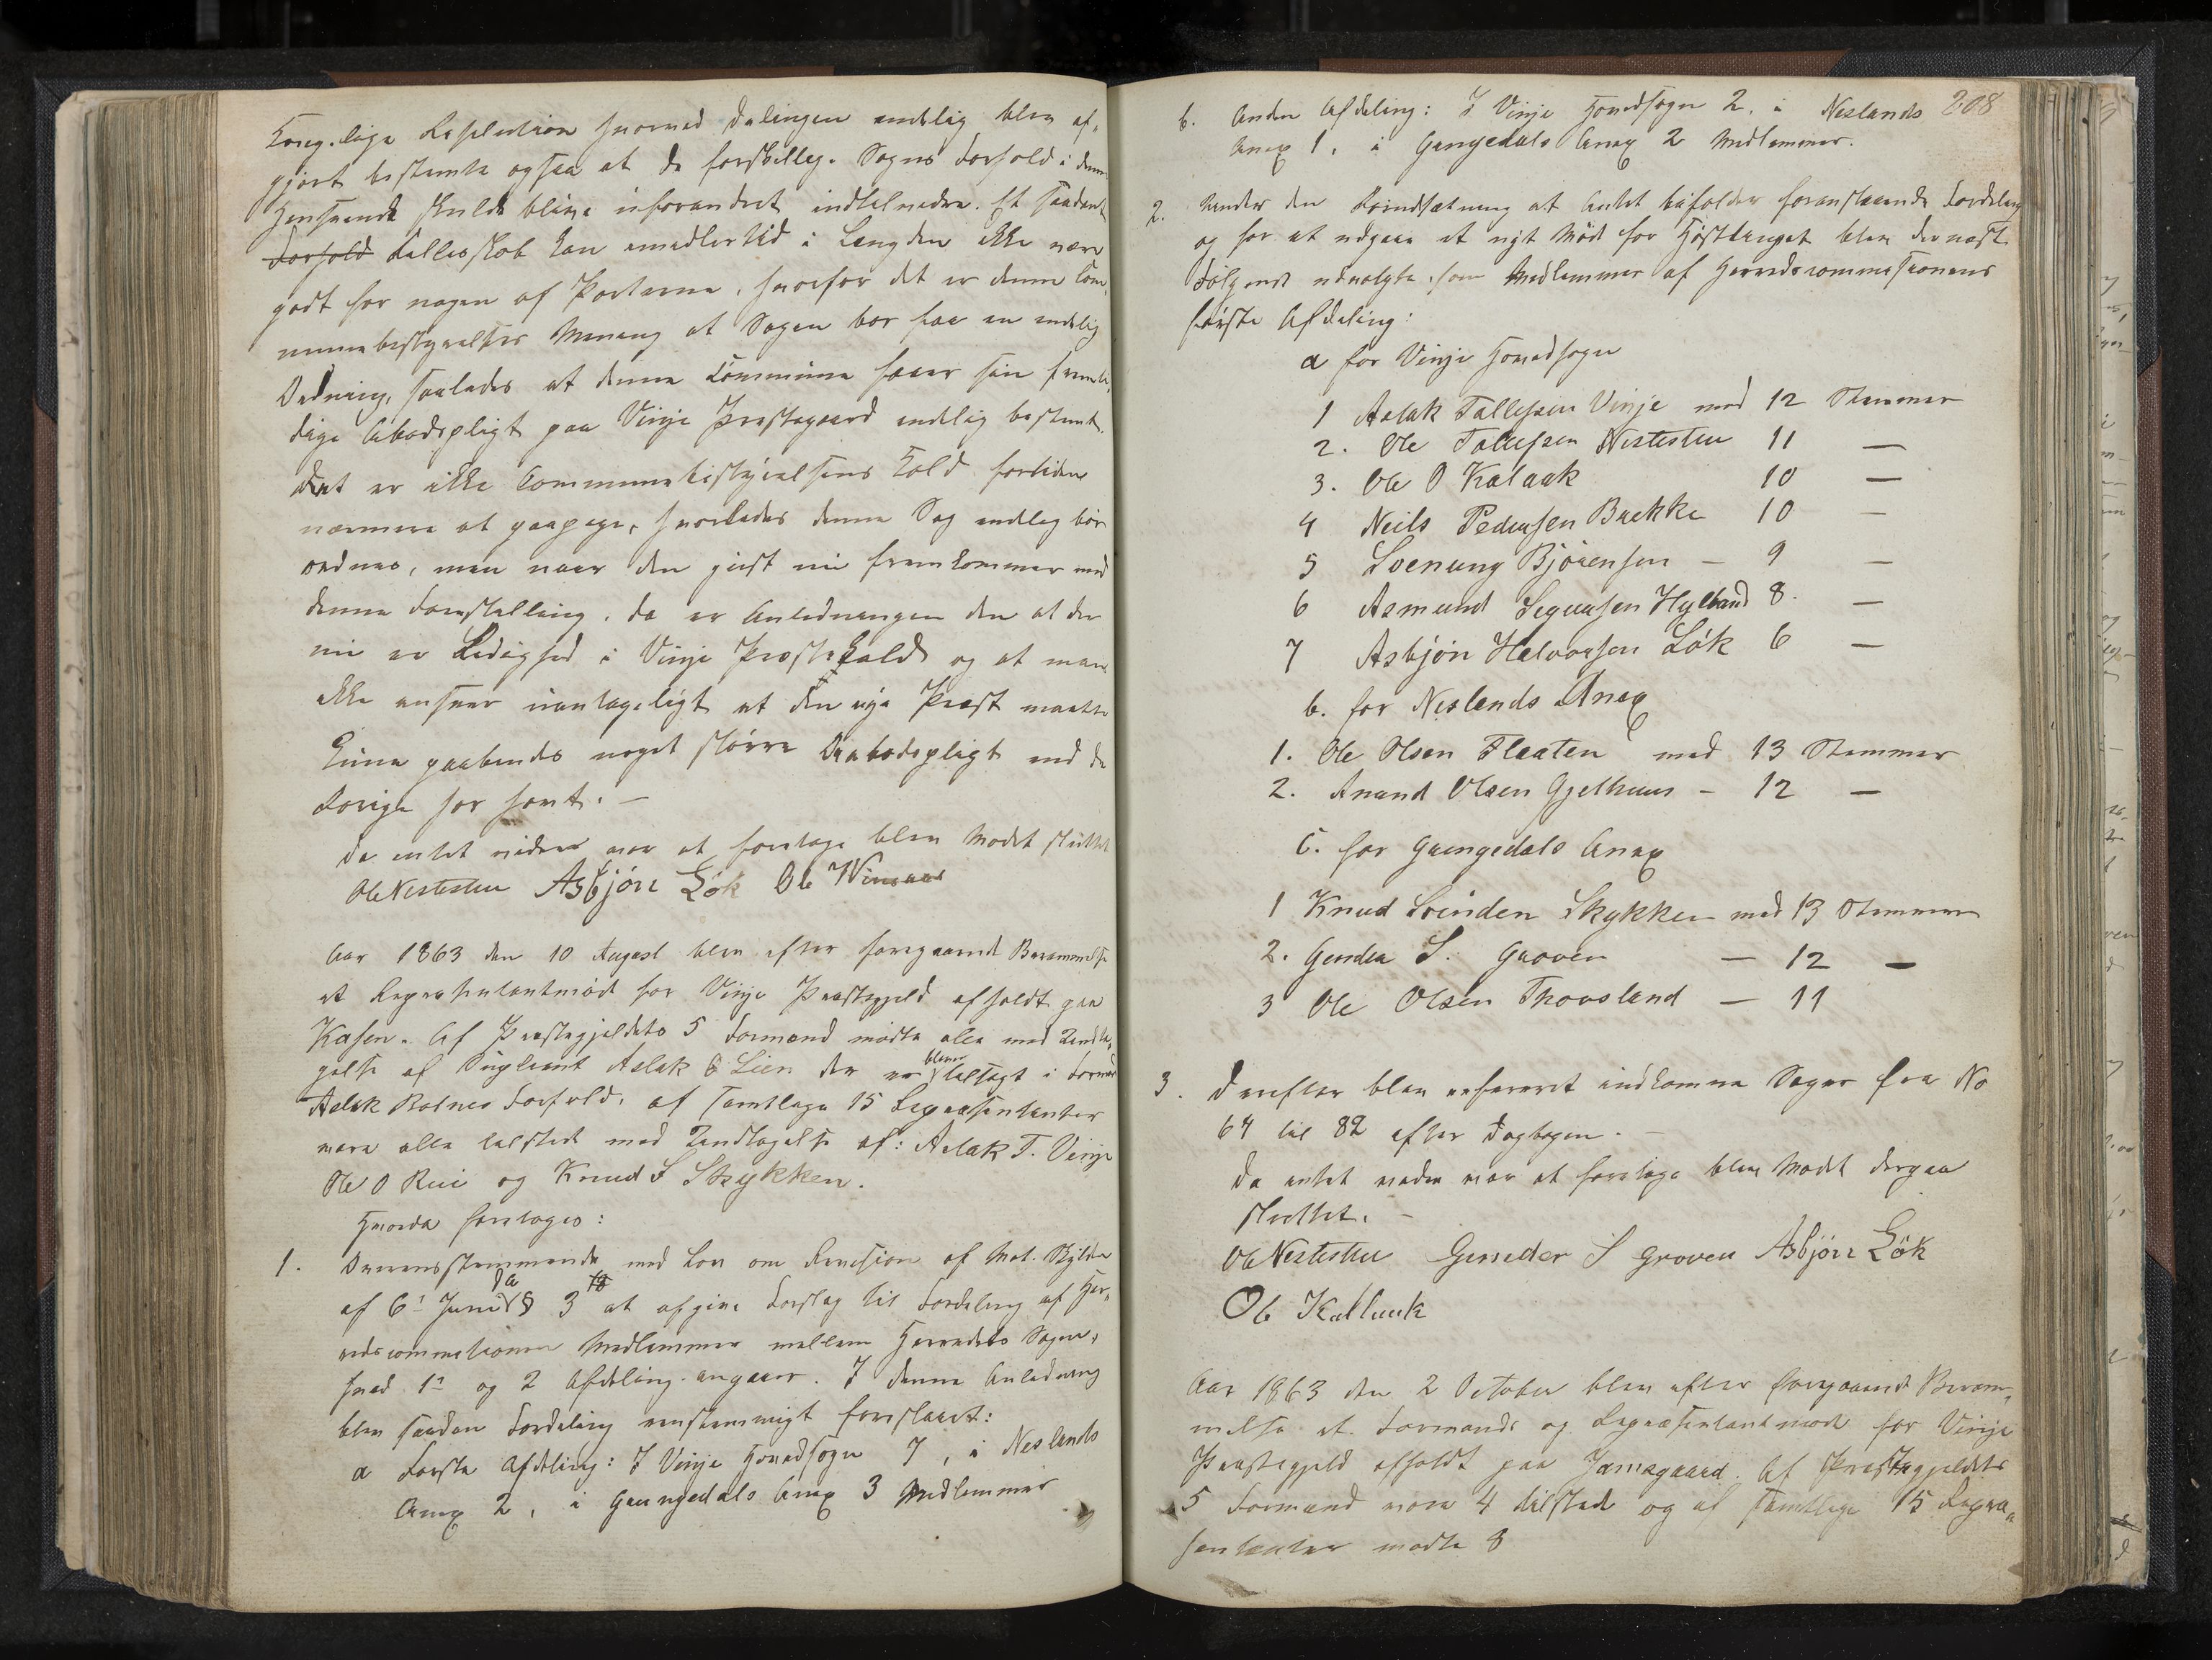 Kongelige Resolution hvorved Delingen endelig blev af-
gjort bestemte ogsaa at de forskjellige Sognes Forhold i denne
Henseende skulde blive uforandret indtilvidere. Et saadant
Forhold Fællesskab kan imidlertid i Længden ikke være
godt for nogen af Parterne, hvorfor det er denne Com-
munebestyrelses Mening at Sagen bør faa en endelig
Ordning, saaledes at denne Commune faaer sin fremti-
dige Aabodspligt paa Vinje Præstegaard endelig bestemt.
Det er ikke Communebestyrelsens Kald fortiden
nærmere at paapege, hvorledes denne Sag endelig bør
ordnes, men naar den just nu fremkommer med
denne Forestilling, da er Anledningen den at der
nu er Ledighed i Vinje Præstekald og at man
ikke anseer uantageligt at den nye Præst maatte
kunne paabindes noget større Aabodspligt end de
Forige har havt. —
Da intet videre var at foretage blev Mødet sluttet
Ole Nestestu Asbjørn Løk Ole Vinsaas
Aar 1863 den 10 August blev efter foregaaende Berammelse
et Repræsentantmøde for Vinje Præstegjeld afholdt paa
Kasen. Af Præstegjeldets 5 Formænd mødte alle med Undta-
gelse af Supleant Aslak O Lien der er bleven tilsagt i Formand
Aslak Botnes Forfald. Af samtlige 15 Repræsentanter
vare alle tilstede med Undtagelse af: Aslak T. Vinje
Ole O Rui og Knud S Skykken.
Hvorda foretoges:
1. Overensstemmende med Lov om Revision af Mat. Skylden
af 6te Juni d a § 3 at afgive Forslag til Fordeling af Her-
redscommissionens Medlemmer mellem Herredets Sogne,
hvad 1ste og 2 Afdeling angaaer. I denne Anledning
blev saadan Fordeling eenstemmigt foreslaaet:
a Første Afdeling: I Vinje Hovedsogn 7, i Neslands
Anex 2, i Grungedals Anex 3 Medlemmer
208
b. Anden Afdeling: I Vinje Hovedsogn 2, i Neslands
Anex 1, i Grungedals Anex 2 Medlemmer.
2. Under den Forudsætning at Amtet bifalder foranstaaende Fordeling
og for at undgaae et nyt Møde for Høsttinget blev dernæst
Følgende udvalgte som Medlemmer af Herredscommissionens
første Afdeling:
a for Vinje Hovedsogn
1 Aslak Tallefsen Vinje med 12 Stemmer
2. Ole Tallefsen Nestestu 11 —
3. Ole O Kalaak 10 —
4 Neils Pedersen Bække 10 —
5 Svenung Bjørensen — 9 —
6 Asmund Segursen Hylland 8. —
7 Asbjøn Halvorsen Løk 6 —
b. for Neslands Anex
1. Ole Olsen Flaaten med 13 Stemmer
2. Anund Olsen Gjelhuus — 12 —
C. for Grungedals Anex
1 Knud Svinden Skykken med 13 Stemmer
2. Gunder S. Groven — 12 —
3 Ole Olsen Thovsland — 11
3. Derefter blev refereret indkomne Sager fra No
64 til 82 efter Dagbogen. —
Da intet videre var at foretage blev Mødet derpaa
sluttet. —
Ole Nestestu Gunder S Groven Asbjørn Løk
Ole Kallaak
Aar 1863 den 2 October blev efter foregaaende Beram-
melse et Formands og Repræsentantmøde for Vinje
Præstegjeld afholdt paa Jamsgaard. Af Præstegjeldets
5 Formænd vare 4 tilstede og af samtlige 15 Repræ-
sentanter mødte 8